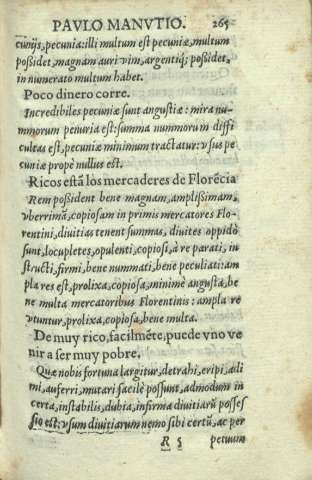 PAVLO MANVTIO. 265
cunijs, pecunia: illi multum est pecuniæ, multum
poßidet, magnam auri vim, argentiq; poßidet,
in numerato multum habet.
Poco dinero corre.
Incredibiles pecuniæ sunt angustiæ: mira nu-
mmorum penuria est: summa nummorum diffi
cultas est, pecuniæ minimum tractatur: vsus pe
cuniæ propè nullus est.
Ricos estã los mercaderes de Florẽcia
Rem poßident bene magnam, amplißimam,
vberrimã, copiosam in primis mercatores Flo-
rentini, diuitias tenent summas, diuites oppidò
sunt, locupletes, opulenti, copiosi, à re parati, in
structi, firmi, bene nummati, bene peculiati: am
pla res est, prolixa, copiosa, minimè angusta, be
ne multa mercatoribus Florentinis: ampla re
vtuntur, prolixa, copiosa, bene multa.
De muy rico, facilmẽte, puede vno ve
nir a ser muy pobre.
Quæ nobis fortuna largitur, detrahi, eripi, adi
mi, auferri, mutari facilè possunt, admodum in
certa, instabilis, dubia, infirma diuitiarũ posses
sio est: vsum diuitiarum nemo sibi certũ, ac per
R 5 petuum